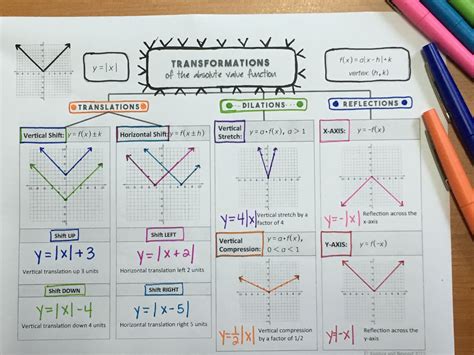 y = |x|
TRANSFORMATIONS
of the absolute value function
f(x) = a|x - h| + k
vertex: (h, k)
TRANSLATIONS
DILATIONS
REFLECTIONS
Vertical Shift: y = f(x) ± k
Shift UP
y=|x|+3
Vertical translation up 3 units
Shift DOWN
y=|x|-4
Vertical translation down 4 units
Horizontal Shift: y = f(x ± h)
Shift LEFT
y=|x+2|
Horizontal translation left 2 units
Shift RIGHT
y=|x-5|
Horizontal translation right 5 units
Vertical Stretch: y = a•f(x), a > 1
y=4|x|
Vertical stretch by a
factor of 4
Vertical Compression: y = a•f(x),
0 < a < 1
y=1/2|x|
Vertical compression
by a factor of 1/2
X-AXIS: y = -f(x)
y=-|x|
Reflection across the
x-axis
Y-AXIS: y = f(-x)
y=|-x|
Reflection across the
y-axis